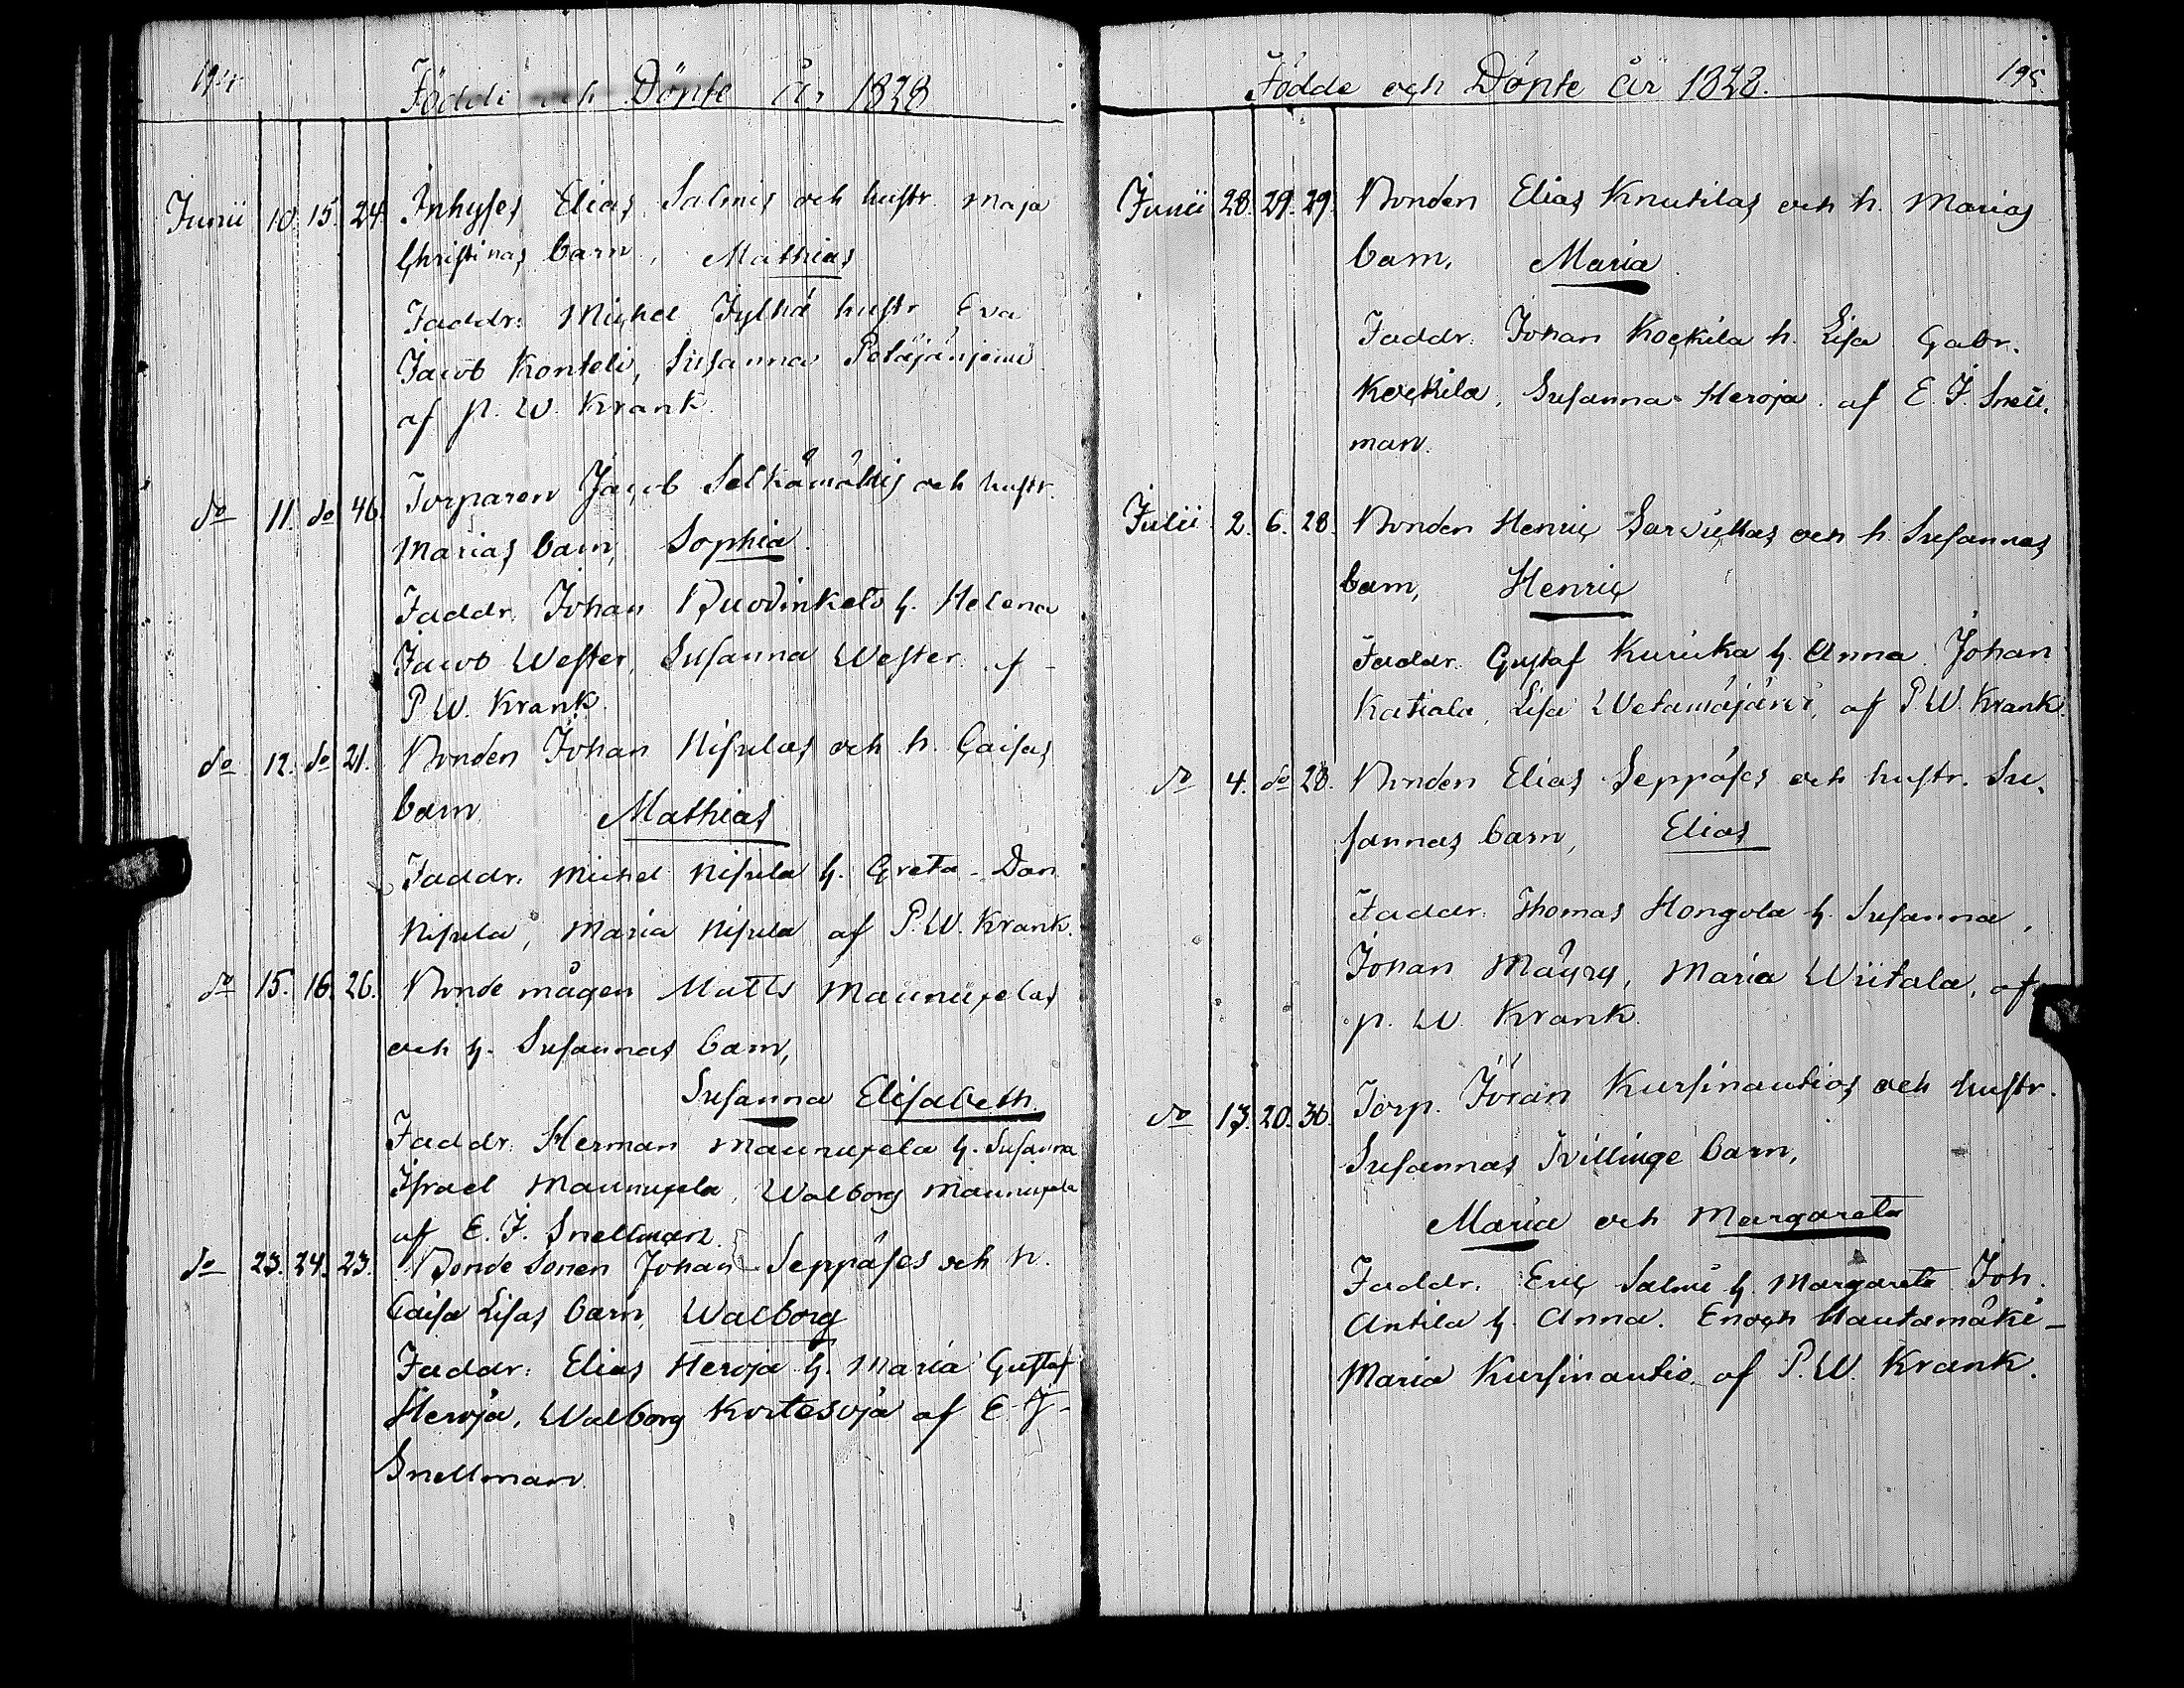 194.
Födde och Döpte År 1828
Junii 10. 15. 24. Inhyses Elias Salmis och hustr. Maja
Christinas barn, Mathias
Faddr: Michel Jylhä hustr Eva
Jacob Konteli, Susanna Petäjäniemi
af P. W. Krank.
do 11. do 46. Torparen Jacob Selkämäkis och hustr.
Marias barn, Sophia.
Faddr. Johan h. Helena
Jacob Wester, Susanna Wester. af
P W. Krank.
do 12. do 21. Bonden Johan Nisulas och h. Caisas
barn Mathias
Faddr: Michel Nisula h. Greta - Dan
Nisula, Maria Nisula af P. W. Krank.
do 15. 16. 26. Bonde mågen Matts Maunuxelas
och h. Susannas barn,
Susanna Elisabeth.
Faddr: Herman Maunuxela h. Susanna
Israel Maunuxela, Walborg Maunuxela
af E. J. Snellman.
do 23. 24. 23. Bonde Sonen Johan Seppäses och h.
Caisa Lisas barn, Walborg
Faddr: Elias Heroja h. Maria Gustaf
Heroja, Walborg Kortesoja af E. J.
Snellman.
195.
Födde och Döpte År 1828.
Junii 28. 29. 29. Bonden Elias Knutilas och h. Marias
barn, Maria.
Faddr. Johan Kockila h. Lisa Gabr.
Kockila, Susanna Heroja. af E. J. Snell-
man.
Julii 2. 6. 28. Bonden Henric och h. Susannas
barn, Henric
Faddr. Gustaf Kurikka h. Anna. Johan
Katiala, Lisa Wetämäjärvi, af P W. Krank.
do 4. do 28. Bonden Elias Seppäses och hustr. Su-
sannas barn, Elias
Faddr. Thomas Hongola h. Susanna,
Johan Mäyry, Maria Wiitala, af
P. W. Krank.
do 13. 20. 30. Torp. Jöran Kursinautios och hustr.
Susannas Tvillinge barn,
Maria och Margareta
Faddr. Eric Salmi h. Margareta Joh.
Antila h. Anna. Enoch Hautamäki -
Maria Kursinautio. af P. W. Krank.